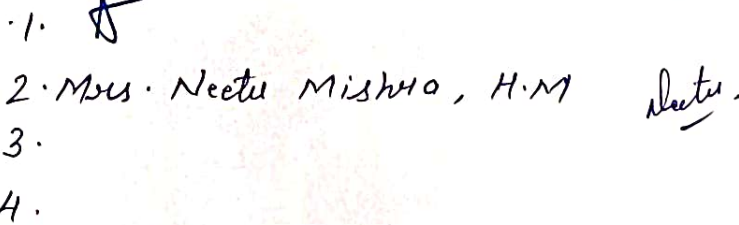 1.
2. Mrs. Neetu Mishra, H.M Neetu.
3.
4.